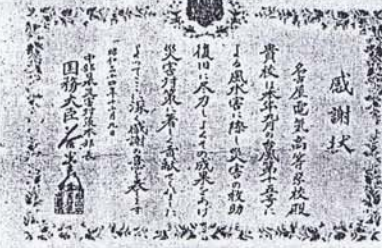 感謝状
名古屋電気高等学校殿
貴校は本年九月の台風第十五号に
よる風水害に際し災害の救助
復旧に尽力しよくその成果をあげ
災害対策に著しく貢献されました
よってここに深く感謝の意を表します
昭和三十四年十二月九日
中部日本災害対策本部長
国務大臣